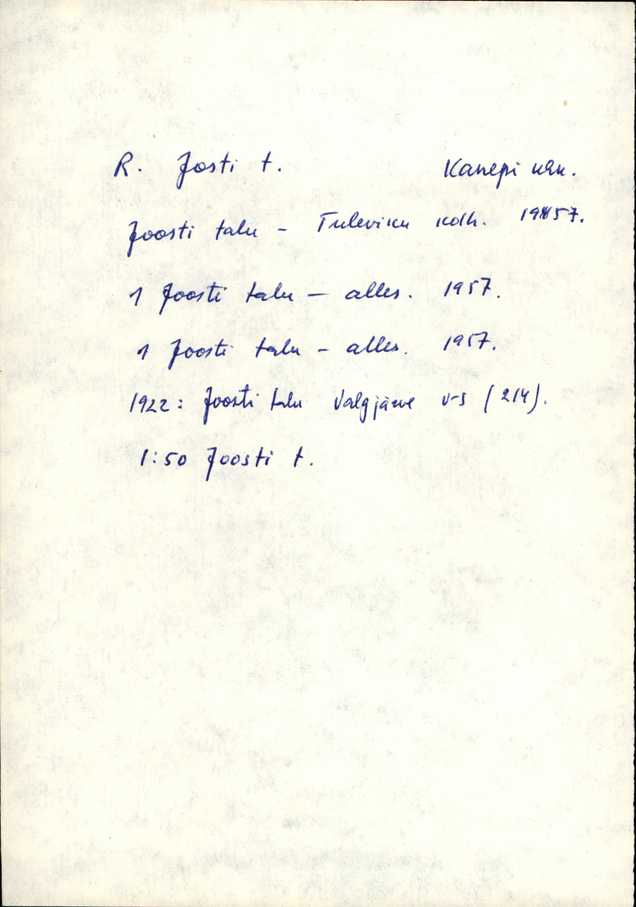 R. Josti t. Kanepi khk.
Joosti talu - Tuleviku kolh. 1957.
1 Joosti talu - alles. 1957.
1 Joosti talu - alles. 1957.
1922: Joosti talu Valgjärve v-s (214).
1:50 Joosti t.